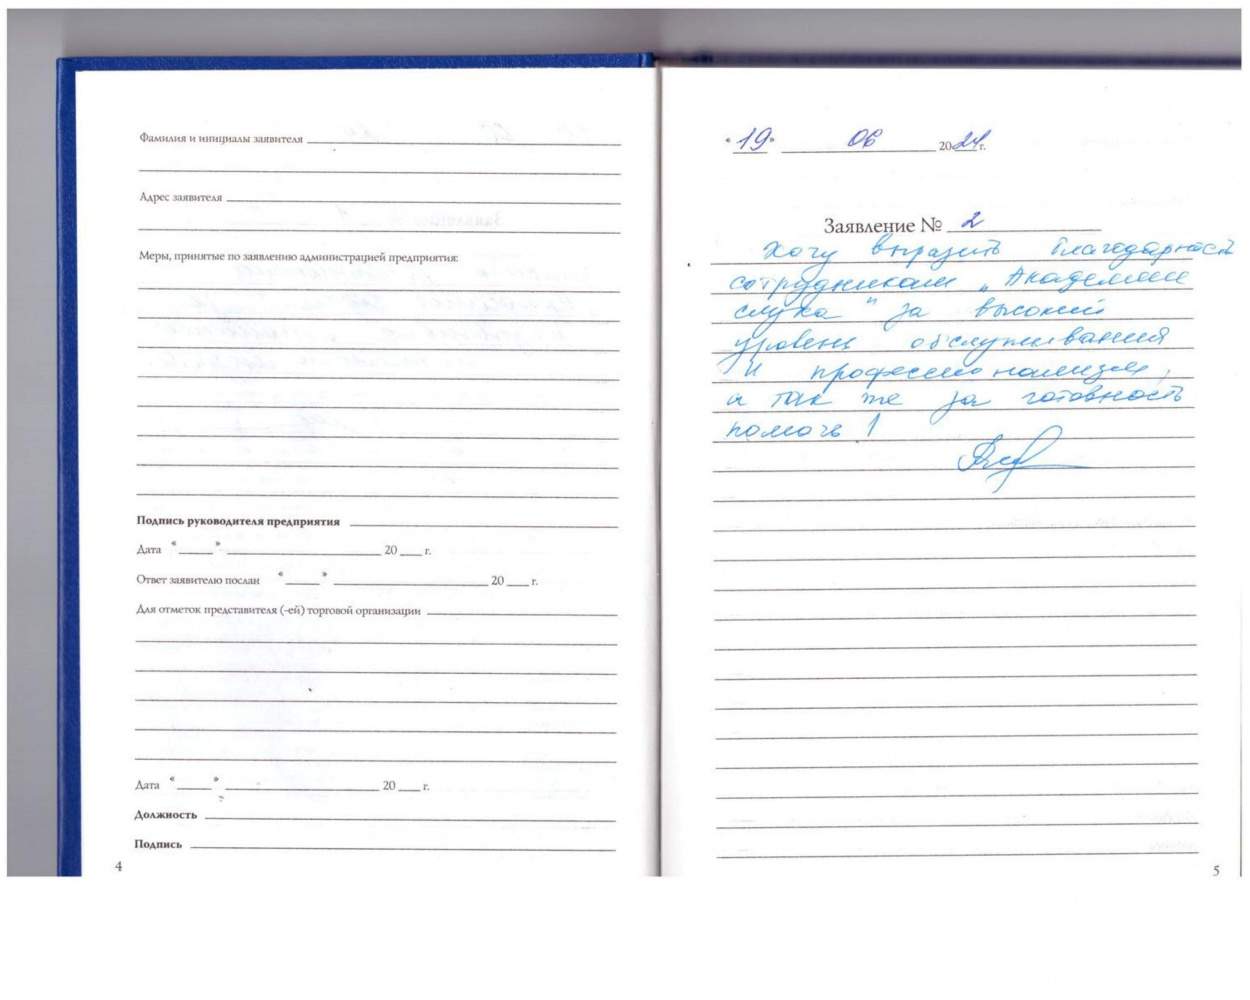 Фамилия и инициалы заявителя
Адрес заявителя
Меры, принятые по заявлению администрацией предприятия:
Подпись руководителя предприятия
Дата «____» ____ 20 ___ г.
Ответ заявителю послан «____» ____ 20 ___ г.
Для отметок представителя (-ей) торговой организации
Дата «____» ____ 20 ___ г.
Должность
Подпись
4
«19» 06 2024 г.
Заявление № 2
Хочу выразить благодарность
сотрудникам „Академии
слуха" за высокий
уровень обслуживания
и профессионализм,
а так же за готовность
помочь!
5